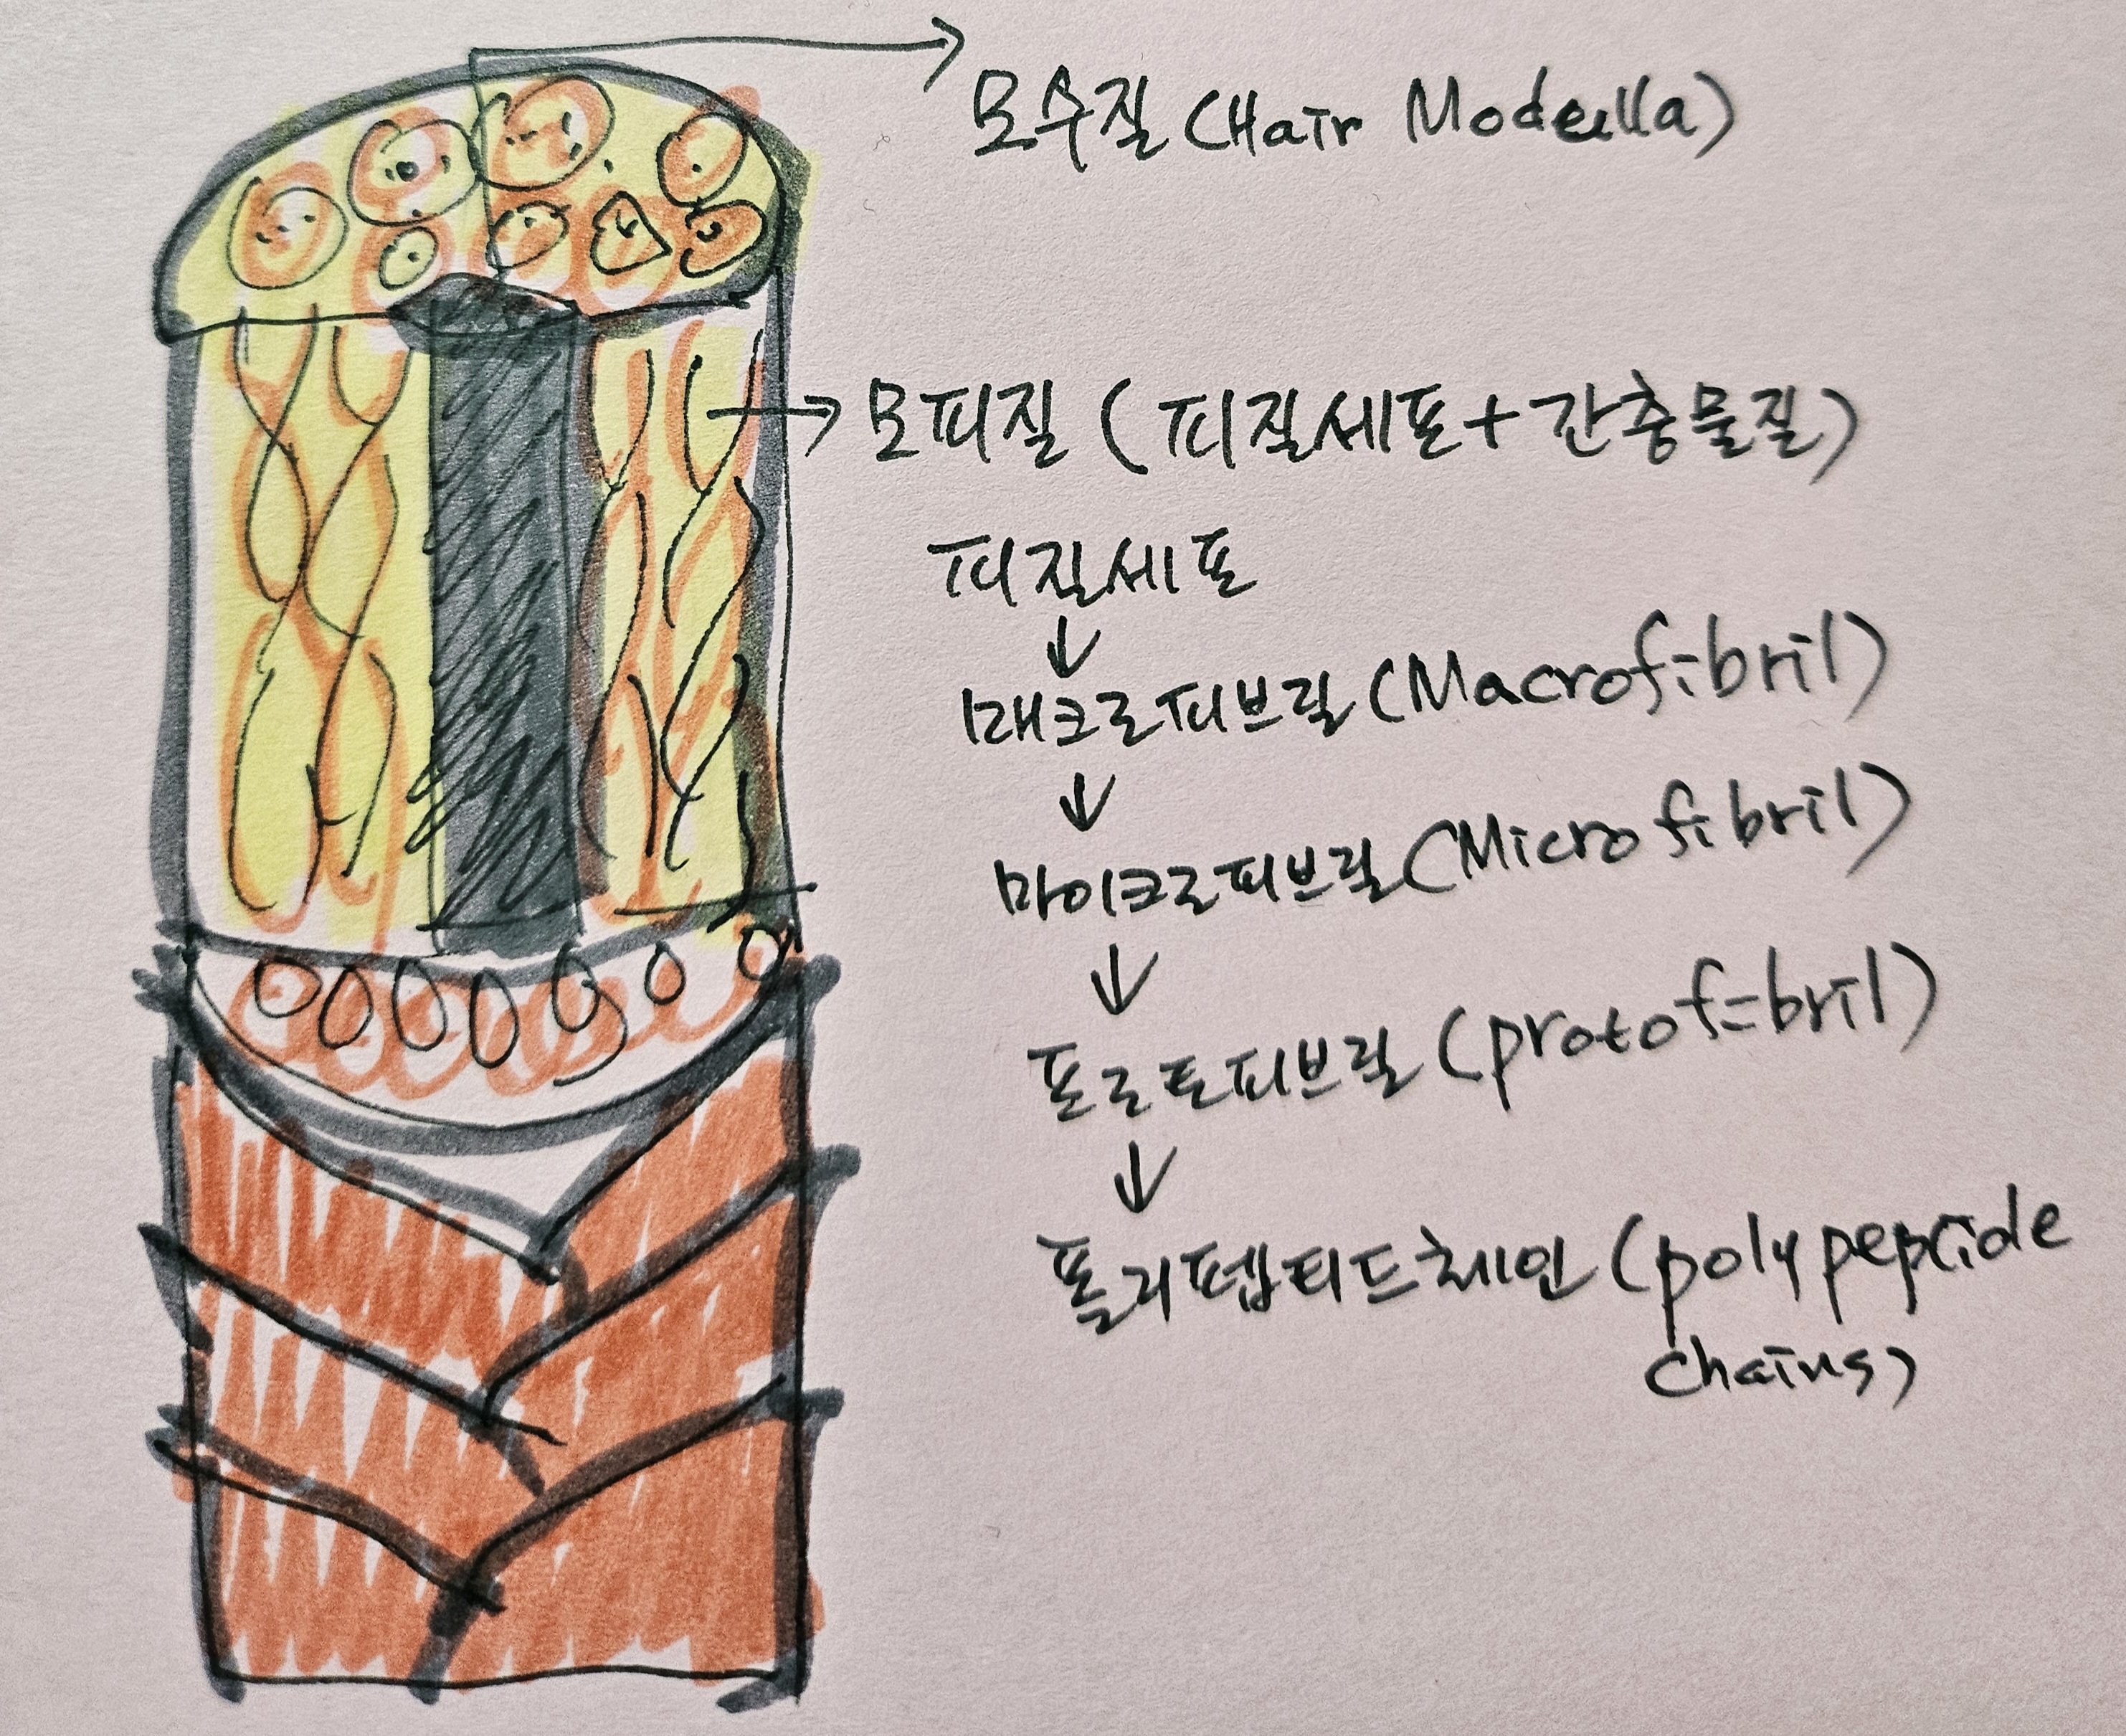 모수질 (Hair Modeulla)
모피질 (피질세포+간충물질)
피질세포
↓
매크로피브릴 (Macrofibril)
↓
마이크로피브릴 (Microfibril)
↓
프로토피브릴 (protofibril)
↓
폴리펩티드체인 (polypeptide
chains)